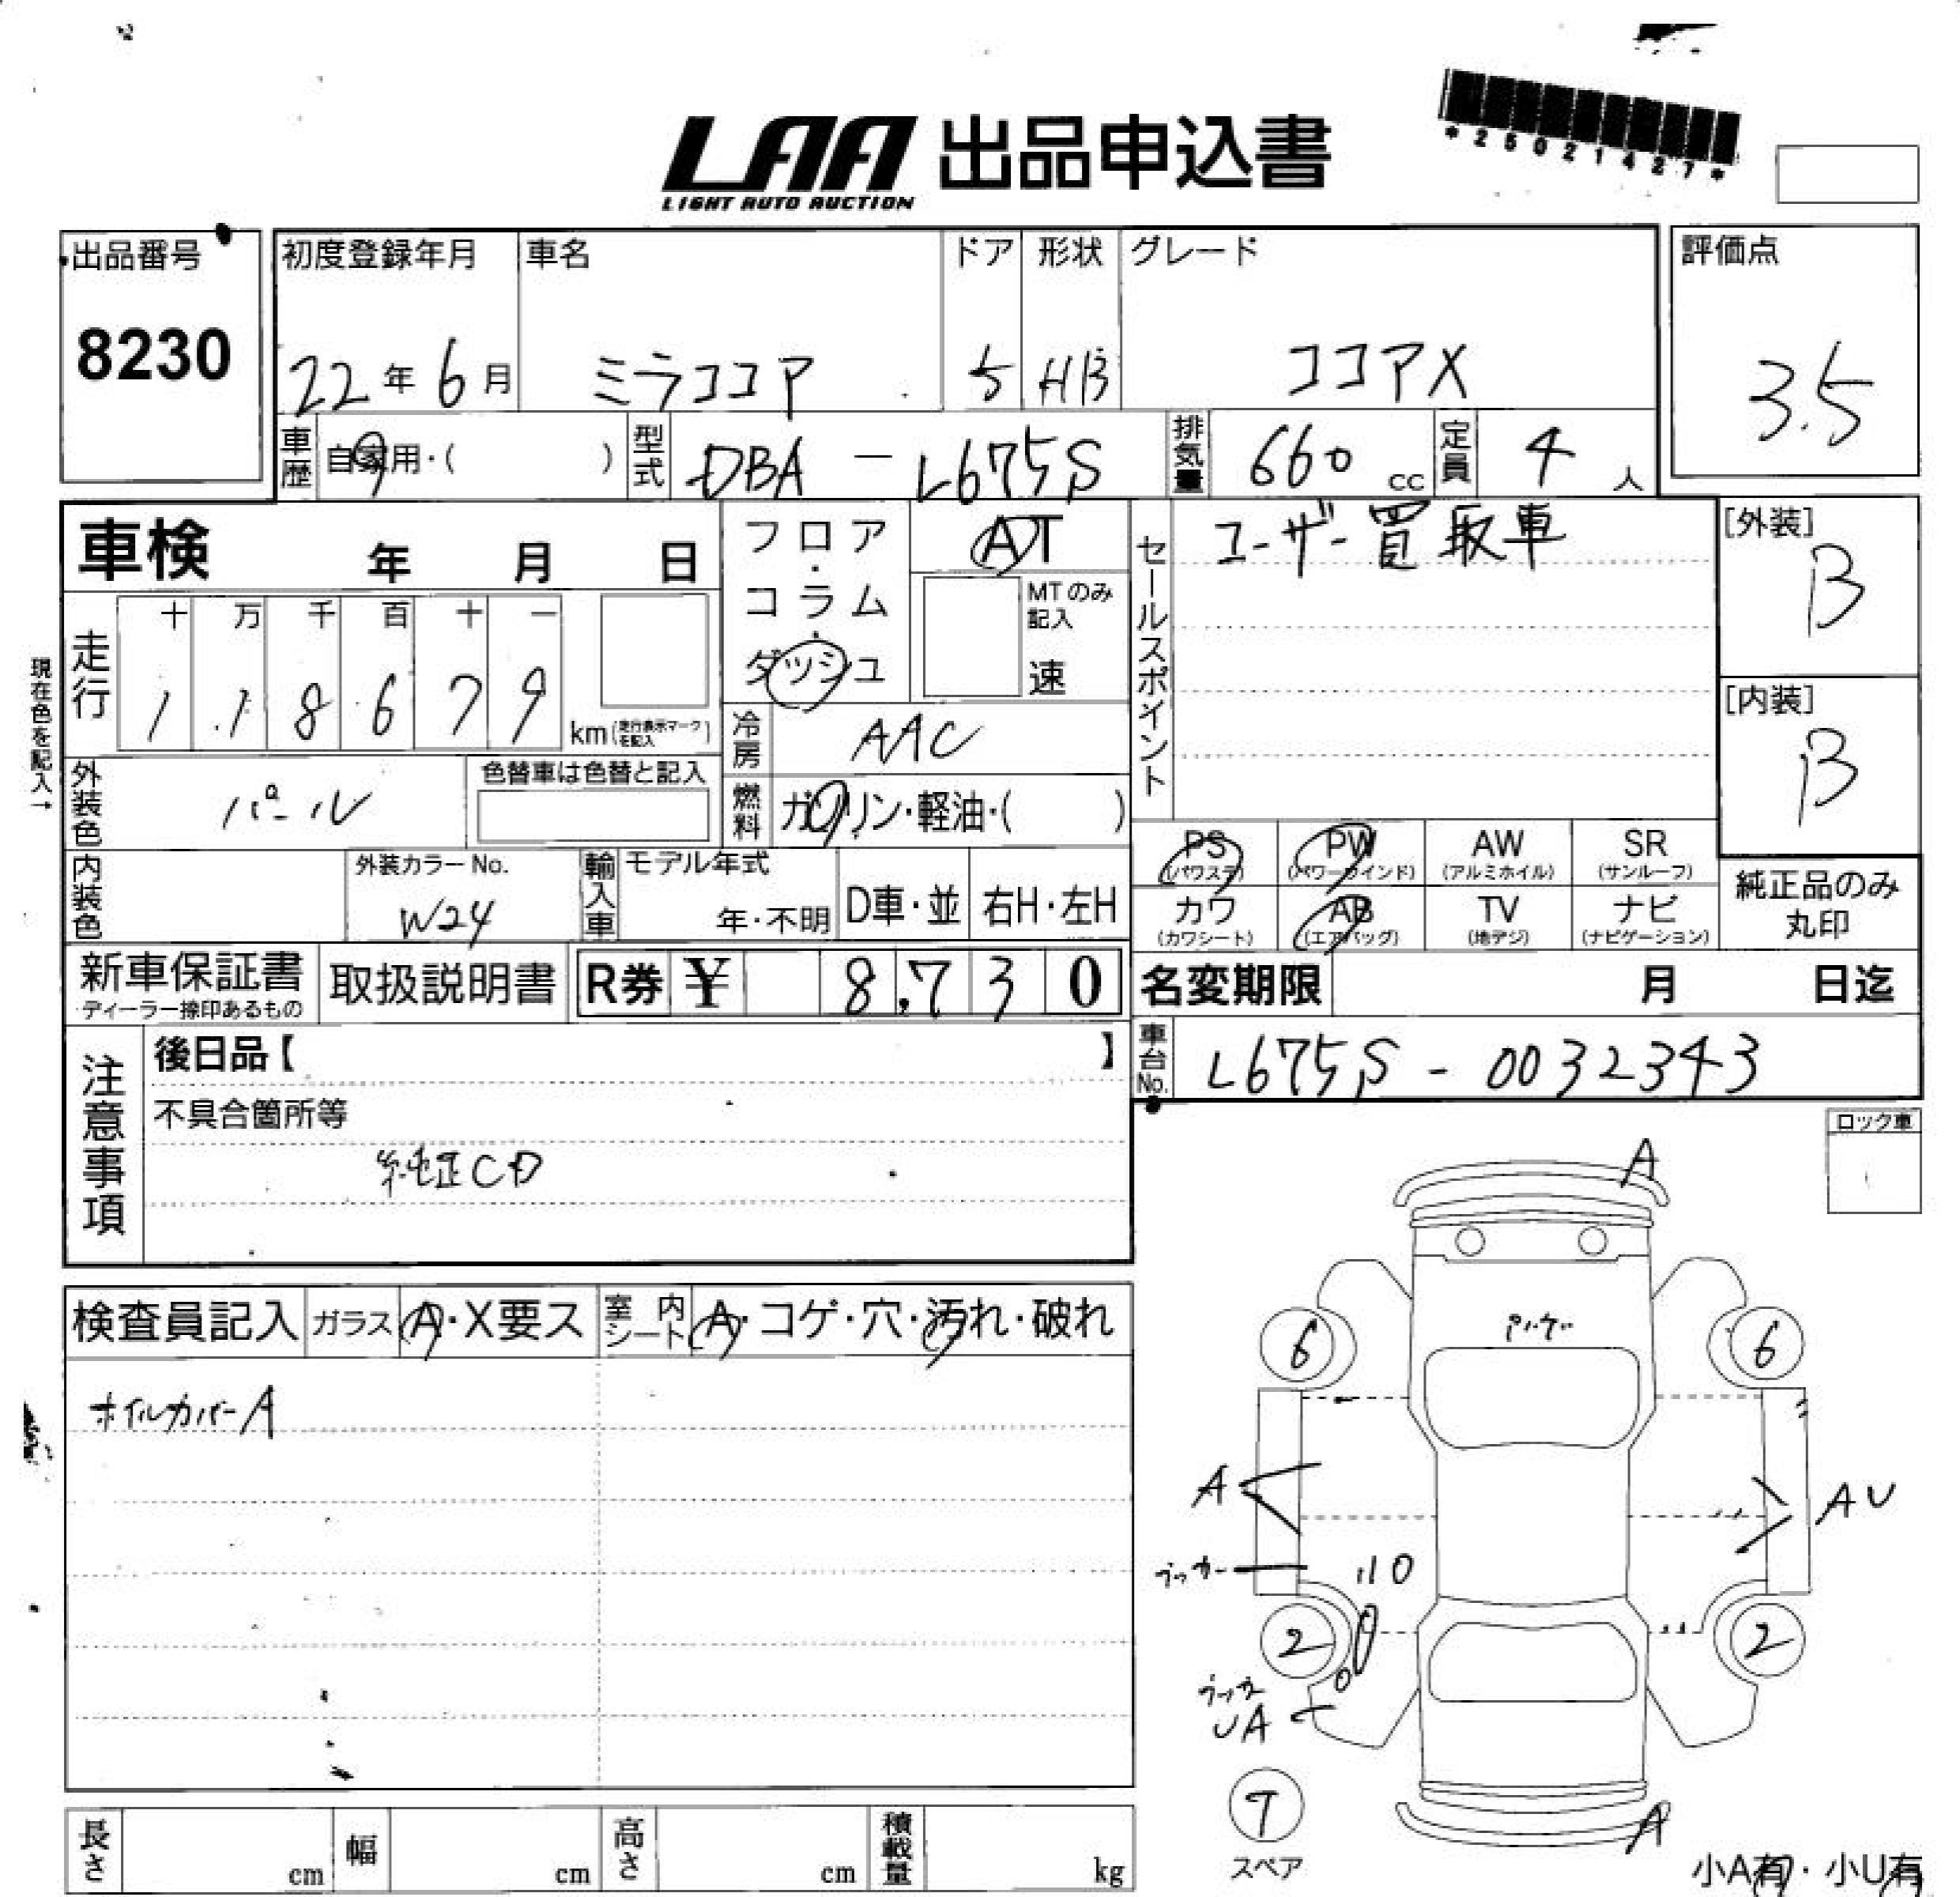 *25021427*
LAA 出品申込書
LIGHT AUTO AUCTION
出品番号
8230
初度登録年月
22年6月
車名
ミラココア
ドア
5
形状
HB
グレード
ココアX
評価点
3.5
車歴
自家用・( )
型式
DBA - L675S
排気量
660 cc
定員
4 人
車検 年 月 日
フロア・コラム・ダッシュ
AT
MTのみ記入
速
セールスポイント
ユーザー買取車
[外装]
B
[内装]
B
現在色を記入→
走行
十 万 千 百 十 一
1 1 8 6 7 9
km(走行表示マークを記入)
冷房
AAC
外装色
パール
色替車は色替と記入
燃料
ガソリン・軽油・( )
PS
(パワステ)
PW
(パワーウインド)
AW
(アルミホイル)
SR
(サンルーフ)
カワ
(カワシート)
AB
(エアバッグ)
TV
(地デジ)
ナビ
(ナビゲーション)
純正品のみ
丸印
内装色
外装カラーNo.
W24
輸入車
モデル年式
年・不明
D車・並
右H・左H
新車保証書
ディーラー捺印あるもの
取扱説明書
R券 ¥ 8,730
名変期限 月 日迄
車台No.
L675S - 0032343
注意事項
後日品【 】
不具合箇所等
純正CD
ロック車
検査員記入
ガラス
A・X要ス
室内シート
A・コゲ・穴・汚れ・破れ
ホイルカバーA
A
6
6
A
AU
110
2
2
UA
T
スペア
A
小A有・小U有
長さ cm
幅 cm
高さ cm
積載量 kg